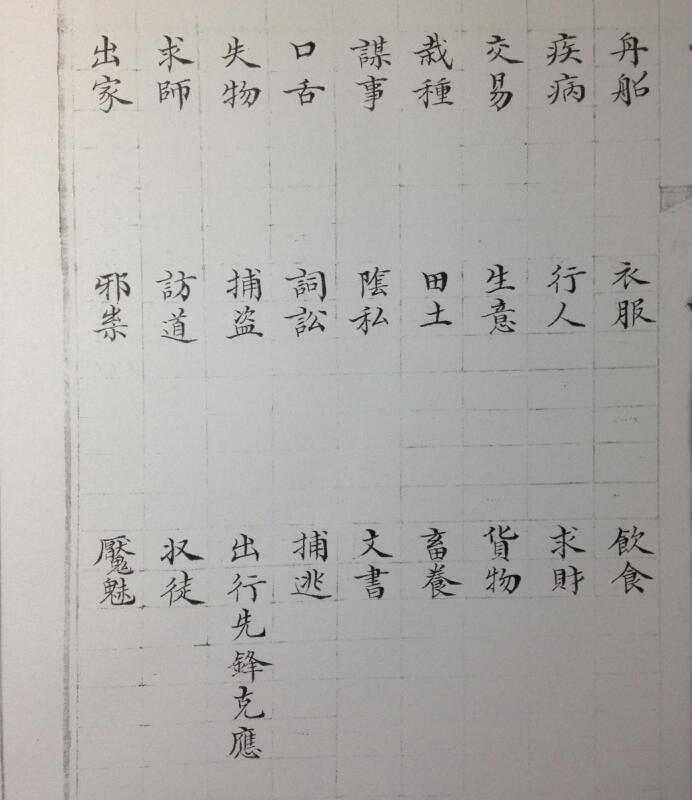 舟船 衣服 飲食
疾病 行人 求財
交易 生意 貨物
栽種 田土 畜養
謀事 陰私 文書
口舌 詞訟 捕逃
失物 捕盜 出行先鋒克應
求師 訪道 收徒
出家 邪祟 魘魅